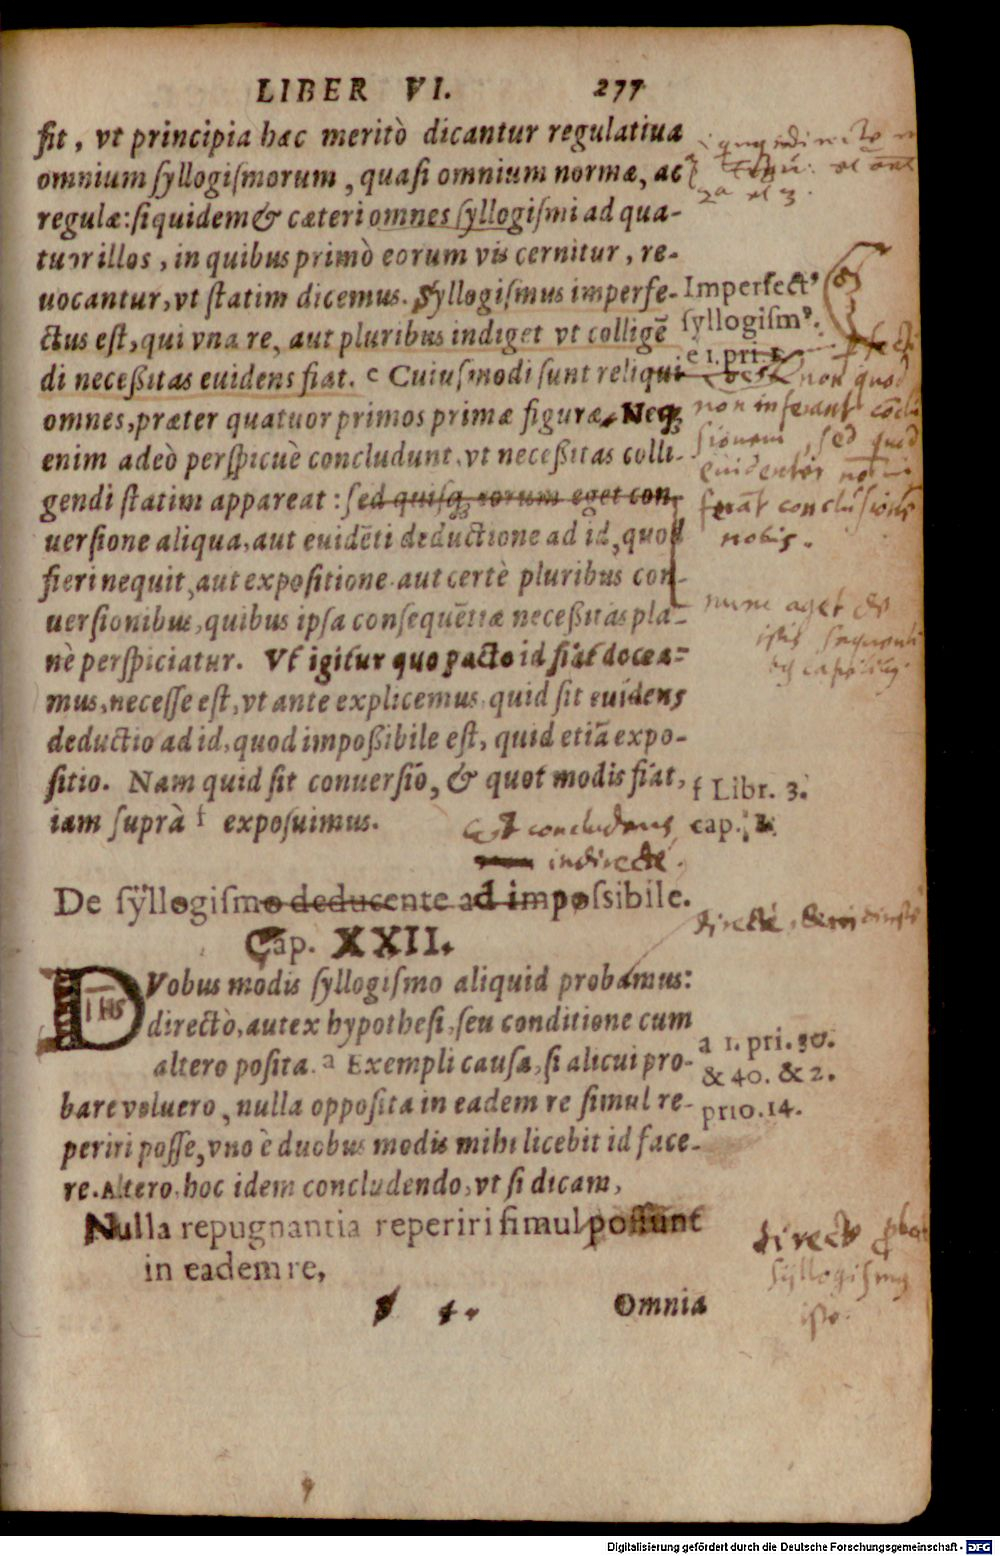 LIBER VI. 277
fit, vt principia hæc meritò dicantur regulatiua
omnium ſyllogiſmorum, quaſi omnium normæ, ac
regulæ: ſiquidem & cæteri omnes ſyllogiſmi ad qua-
tuor illos, in quibus primò eorum vis cernitur, re-
uocantur, vt ſtatim dicemus. Syllogiſmus imperfe-
ctus eſt, qui vna re, aut pluribus indiget vt colligē
di neceßitas euidens fiat. e Cuiuſmodi ſunt reliqui
omnes, præter quatuor primos primæ figuræ. Neq;
enim adeò perſpicuè concludunt, vt neceßitas colli-
gendi ſtatim appareat: ſed quiſq; eorum eget con-
uerſione aliqua, aut euidēti deductione ad id, quod
fieri nequit, aut expoſitione aut certè pluribus con-
uerſionibus, quibus ipſa conſequētiæ neceßitas pla-
nè perſpiciatur. Vt igitur quo pacto id fiat docea-
mus, neceſſe eſt, vt ante explicemus quid ſit euidens
deductio ad id, quod impoßibile eſt, quid etiā expo-
ſitio. Nam quid ſit conuerſio, & quot modis fiāt,
iam ſuprà f expoſuimus.
Imperfect⁹
ſyllogiſm⁹.
e 1. pri. 1.
non quod
non inferant cōclu
ſionem, ſed quod
euidenter non in
ferāt conclusionē
nobis.
nunc aget de
f Libr. 3.
cap. 1.
concludens
indirectè.
De ſyllogiſmo deducente ad impoſsibile.
Cap. XXII.
IHS
DVobus modis ſyllogiſmo aliquid probamus:
directò, aut ex hypotheſi, ſeu conditione cum
altero poſita. a Exempli cauſa, ſi alicui pro-
bare voluero, nulla oppoſita in eadem re ſimul re-
periri poſſe, vno è duobus modis mihi licebit id face-
re. Altero, hoc idem concludendo, vt ſi dicam,
Nulla repugnantia reperiri ſimul poſſunt
in eadem re,
a 1. pri. 30.
& 40. & 2.
prio. 14.
directe
ſyllogiſmus
iste.
Omnia
Digitalisierung gefördert durch die Deutsche Forschungsgemeinschaft - DFG